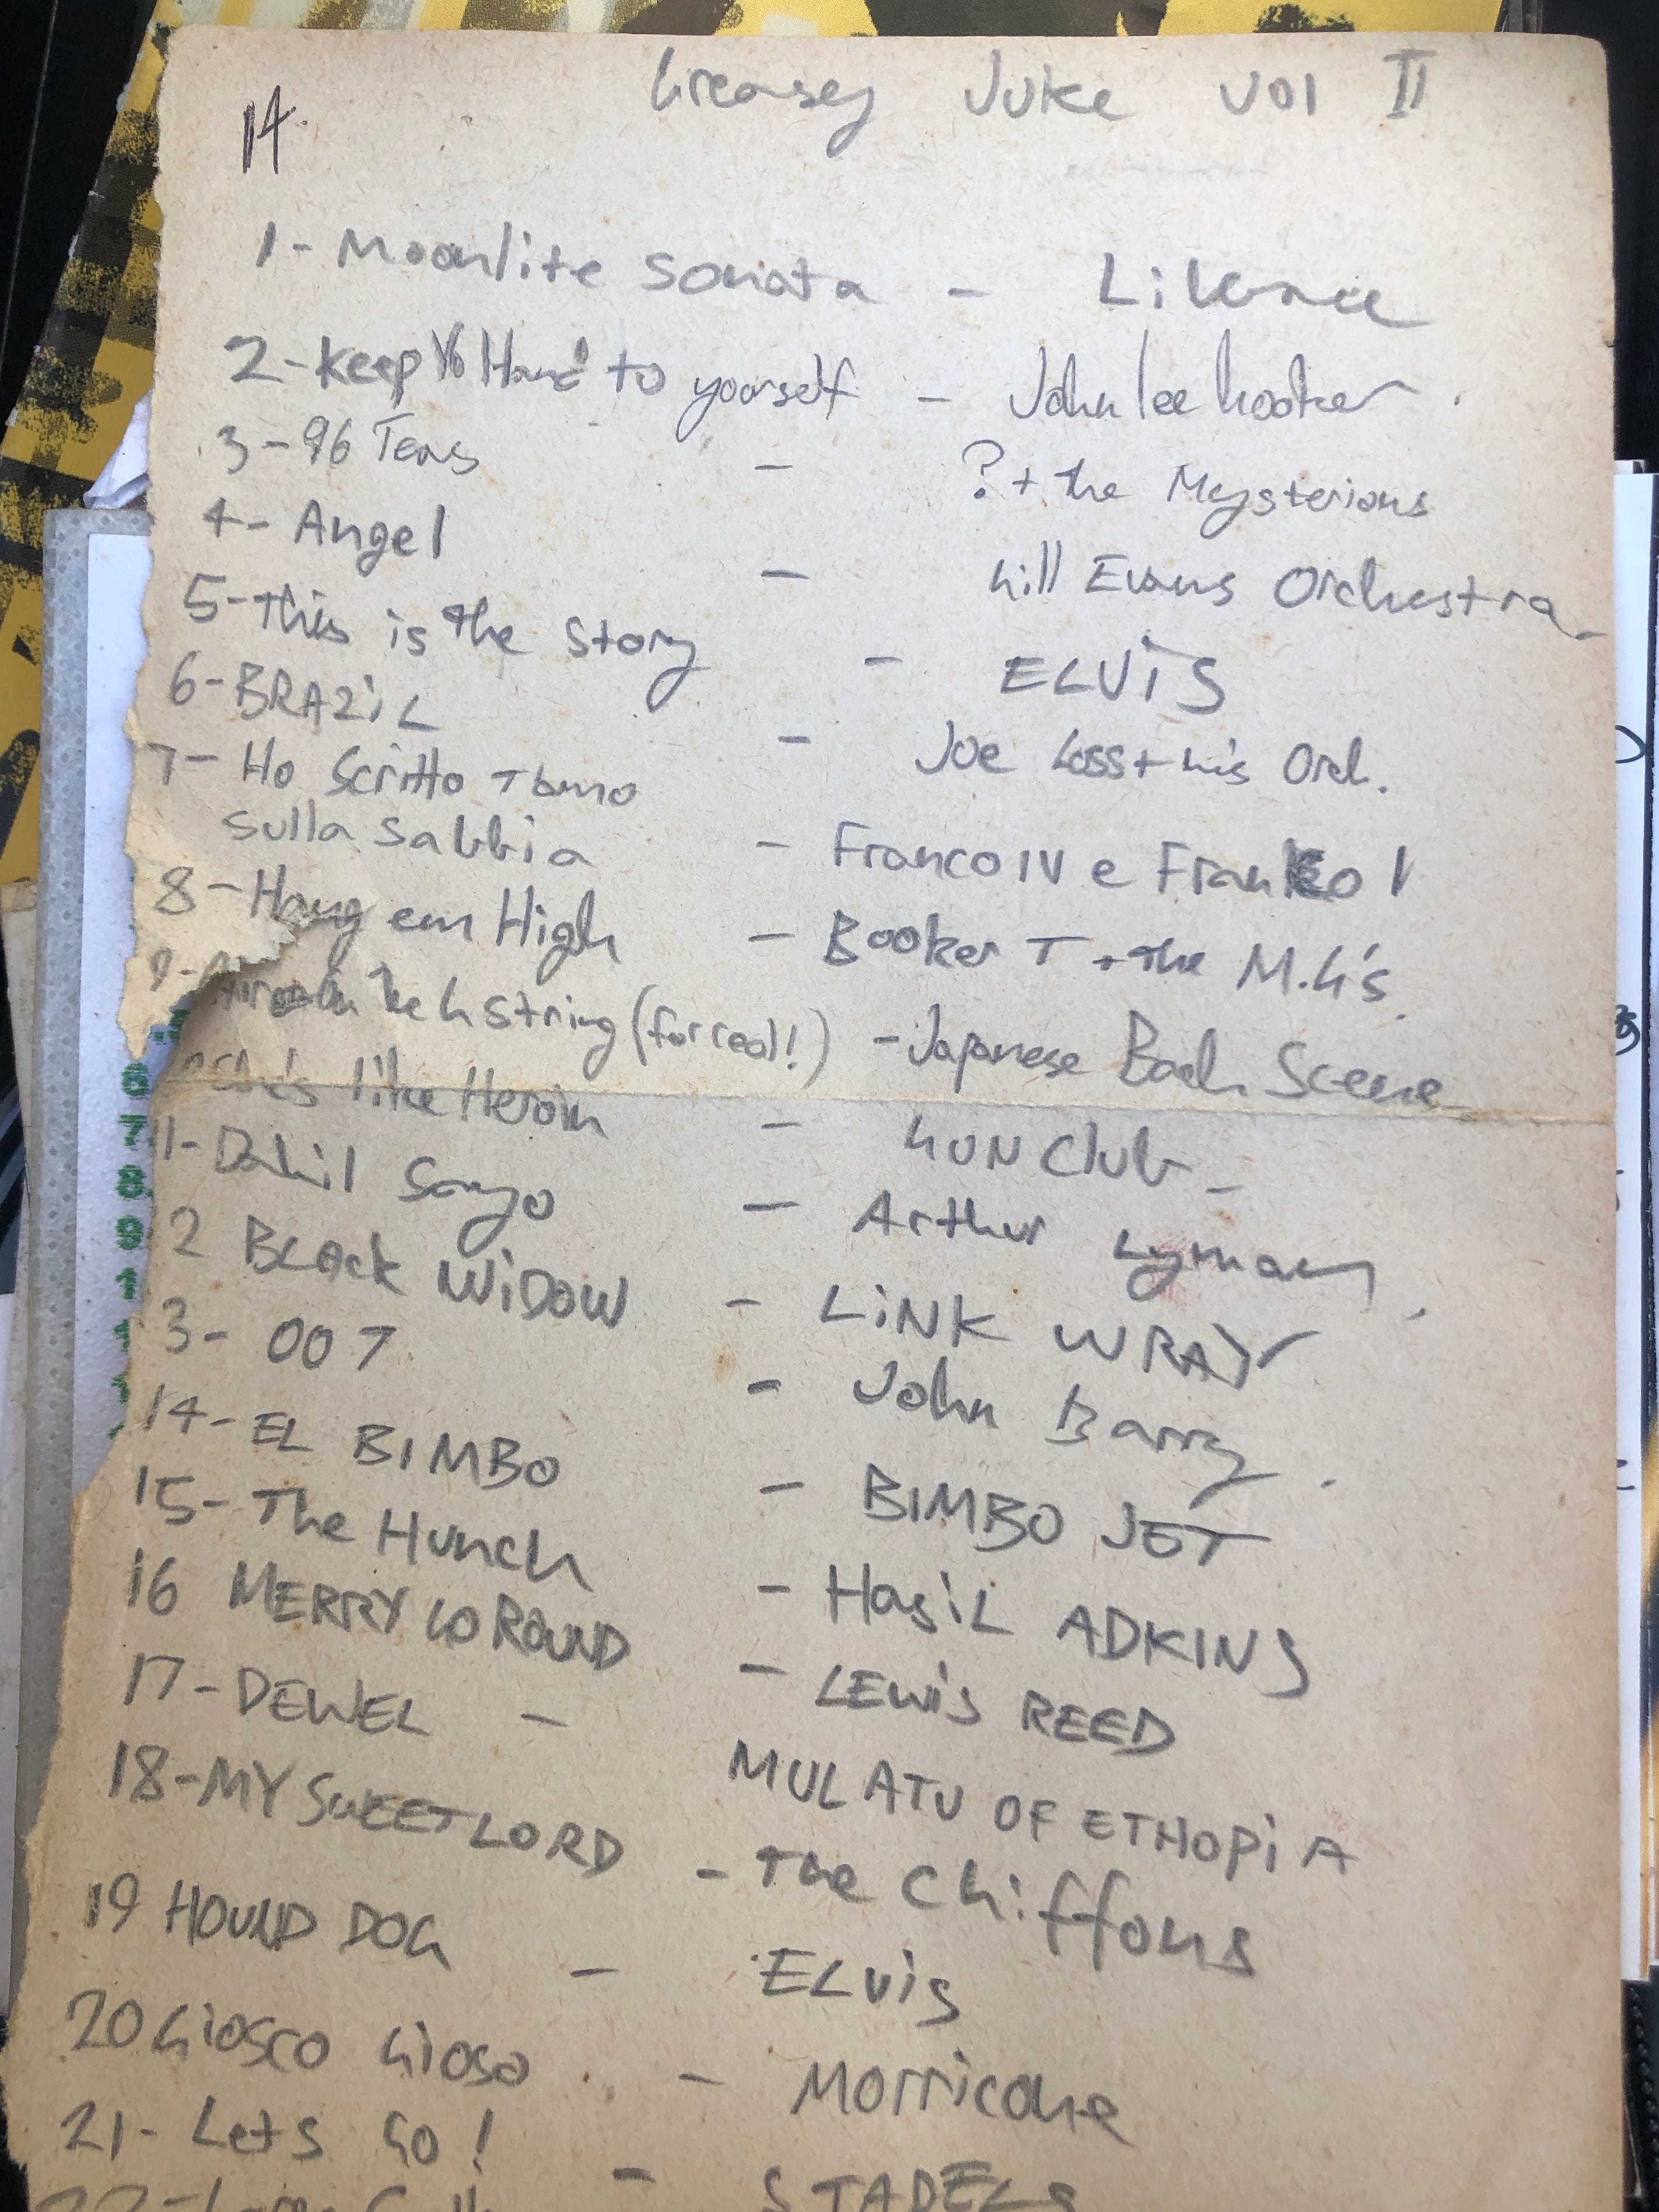 Greasey Juke Vol II
14.
1- Moonlite Sonata - Liberace
2- Keep Yo Hand to yourself - John lee hooker.
3- 96 Tears - ? + the Mysterians
4- Angel - Gill Evans Orchestra
5- This is the Story - ELViS
6- BRAZiL - Joe Loss + his Orch.
7- Ho Scritto T'amo
sulla sabbia - Franco IV e Franko I
8- Hang em High - Booker T + the M.G's
9- Air on the G String (for real!) - Japanese Bach Scene
She's like Heroin - GUN Club
11- Dahil Sayo - Arthur Lyman.
2 BLAck WiDOW - LiNK WRAY
3- 007 - John Barry.
14- EL BIMBO - BIMBO JET
15- The Hunch - HasiL ADKINS
16 MERRY GO ROUND - LEWiS REED
17- DEWEL - MULATU OF ETHOPiA
18- MY SWEET LORD - The Chiffons
19 HOUND DOG - ELviS
20 Giosco Gioso - Morricone
21- Lets Go! - STADELS